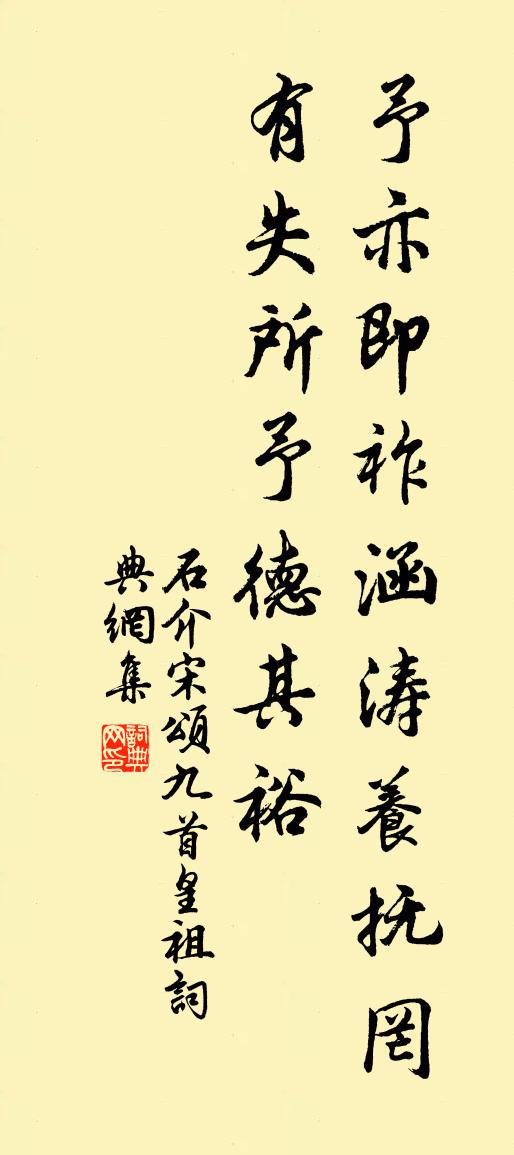 予亦即祚涵涛養抚罔
有失所予德其裕
石介宋頌九首皇祖詞
典網集
詞典網印